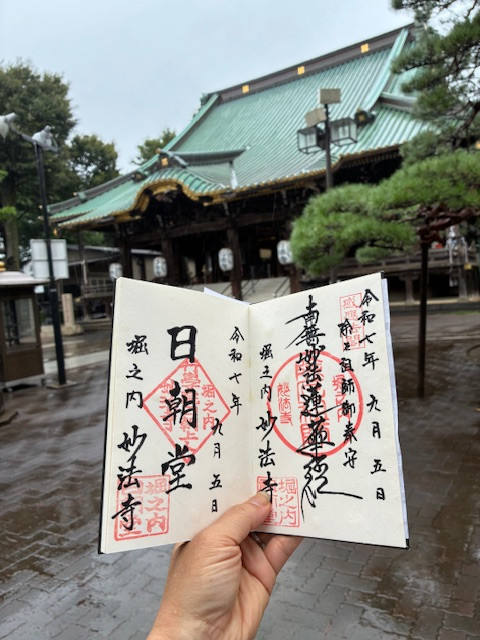 令和七年 九月五日
除厄祖師御奉守
南無妙法蓮華経
堀之内 妙法寺
堀之内
妙法寺
令和七年 九月五日
日朝堂
堀之内
堀之内 妙法寺
堀之内